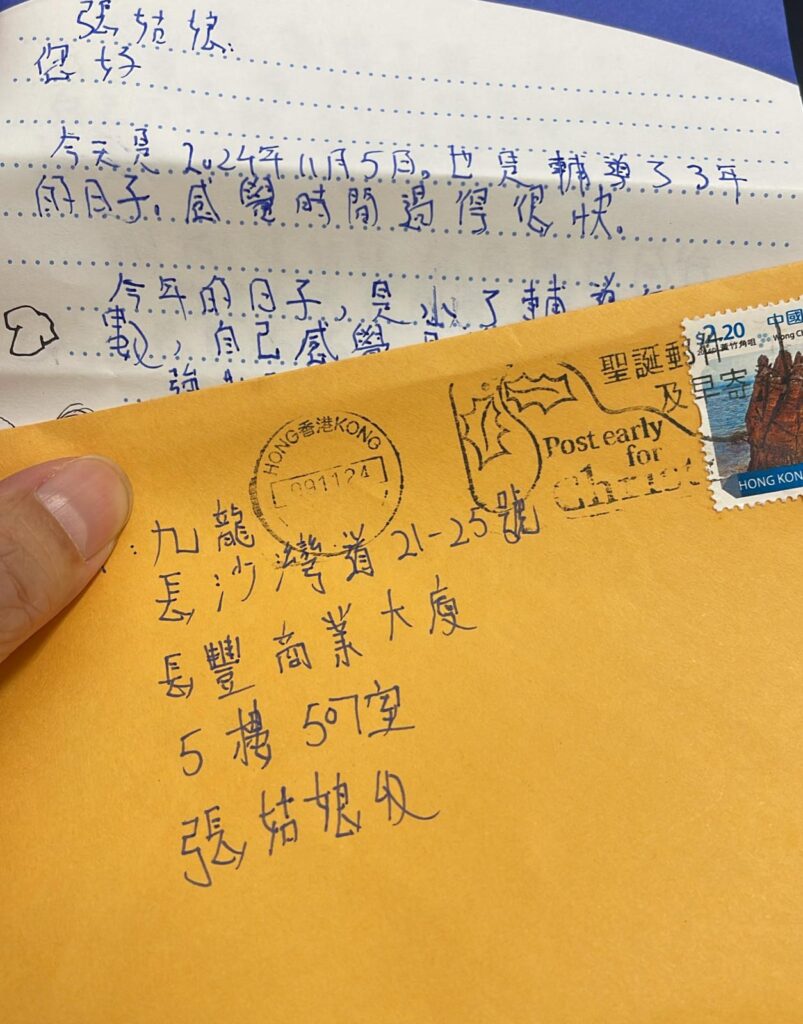 張姑娘:
您好
今天是2024年11月5日。也是輔導了3年
的日子。感覺時間過得很快。
今年的日子,是少了輔導
數,自己感覺
強
$2.20 中國
黃竹角咀 Wong Ch
HONG KON
聖誕郵件
及早寄
Post early
for
Christ
HONG香港KONG
091124
九龍
長沙灣道21-25號
長豐商業大廈
5樓507室
張姑娘收